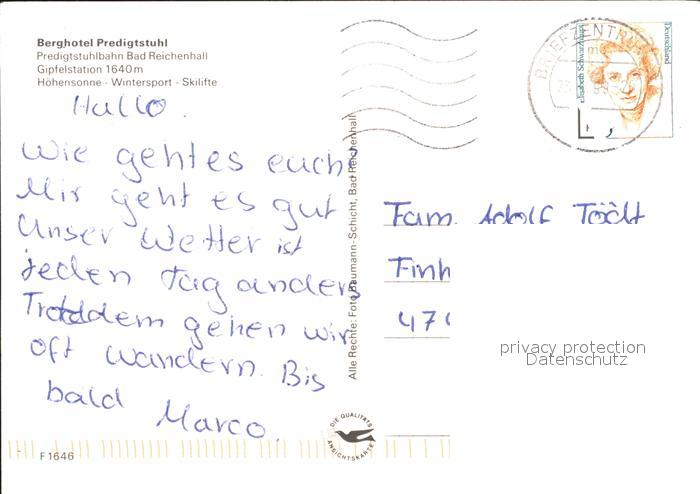 Berghotel Predigtstuhl
Predigtstuhlbahn Bad Reichenhall
Gipfelstation 1640 m
Höhensonne - Wintersport - Skilifte
Hallo.
Wie geht es euch?
Mir geht es gut
Unser Wetter ist
jeden Tag anders
Trotzdem gehen wir
oft wandern. Bis
bald Marco.
F 1646
Alle Rechte: Foto Baumann-Schicht, Bad Reichenhall
DIE QUALITÄTS
ANSICHTSKARTE
BRIEFZENTRUM
Elisabeth Schwarzhaupt
Deutschland
Fam. Adolf
Finh
47
privacy protection
Datenschutz